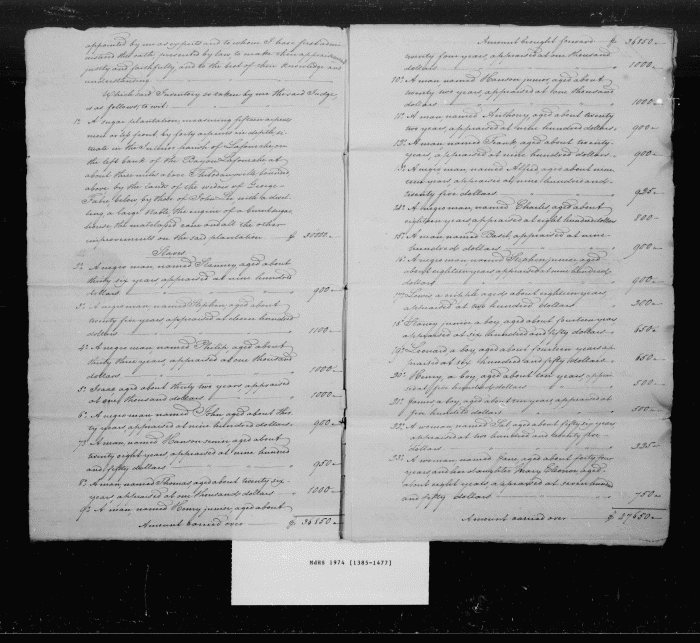 appointed by me as experts and to whom I have first admin-
istered the oath prescribed by law to make them appraise
justly and faithfully, and to the best of their knowledge and
understanding
Which said Inventory is taken by me the said Judge,
is as follows, to wit
1º A sugar plantation, measuring fifteen arpens
more or less front, by forty arpens in depth, si-
tuate in the parish of Lafourche on
the left bank of the Bayou Lafourche at
about three miles above bounded
above by the lands of the widow of George
below, by that of John with a dwel-
ling a large Stable the engine of a
house the and all the other
improvements on the said plantation $
Slaves
2º A negro man named aged about
thirty six years appraised at nine hundred
dollars 900
3º A negro man, named Stephen, aged about
twenty five years appraised at eleven hundred
dollars 1100
4º A negro man, named Philip aged about
thirty three years, appraised at one thousand
dollars 1000
5º Isaac aged about thirty two years appraised
at one thousand dollars 1000
6º A negro man, named John aged about thir-
ty years, appraised at nine hundred dollars 900
7º A man named Hanson senior, aged about
twenty eight years, appraised at nine hundred
and fifty dollars 950
8º A man named Thomas, aged about twenty six
years appraised at one thousand dollars 1000
9º A man, named Henry junior, aged about
Amount carried over $ 36850
Amount brought forward $ 36850
twenty four years, appraised at one thousand
dollars 1000
10º A man named Hanson junior, aged about
twenty two years, appraised at one thousand
dollars 1000
11º A man named Anthony aged about twenty
two years appraised at nine hundred dollars 900
12º A man named Frank aged about twenty
years, appraised at nine hundred dollars 900
13º A negro man, named Alfred aged about nine
teen years, appraised at nine hundred and
twenty five dollars 925
14º A negro man, named Charles aged about
eighteen years appraised at eight hundred dollars 800
15º A man named appraised at nine
hundred dollars 900
16º A negro man named Stephen junior, aged
about eighteen years appraised at nine hundred
dollars 900
17º Lewis a cripple aged about eighteen years,
appraised at hundred dollars
18º junior a boy, aged about fourteen years
appraised at six hundred and fifty dollars 650
19º Leonard a boy aged about fourteen years ap-
praised at six hundred and fifty dollars 650
20º Henry, a boy, aged about ten years, appr-
aised at five hundred dollars 500
21º James a boy, aged about ten years appraised at
five hundred dollars 500
22º A woman named aged about fifty six years
appraised at two hundred and twenty five
dollars 225
23º A woman named Jane, aged about forty four
years and her daughter Mary Eleonor, aged
about eight years, appraised at seven hundred
and fifty dollars 750
Amount carried over $
MdHR 1974 (1385-1477)